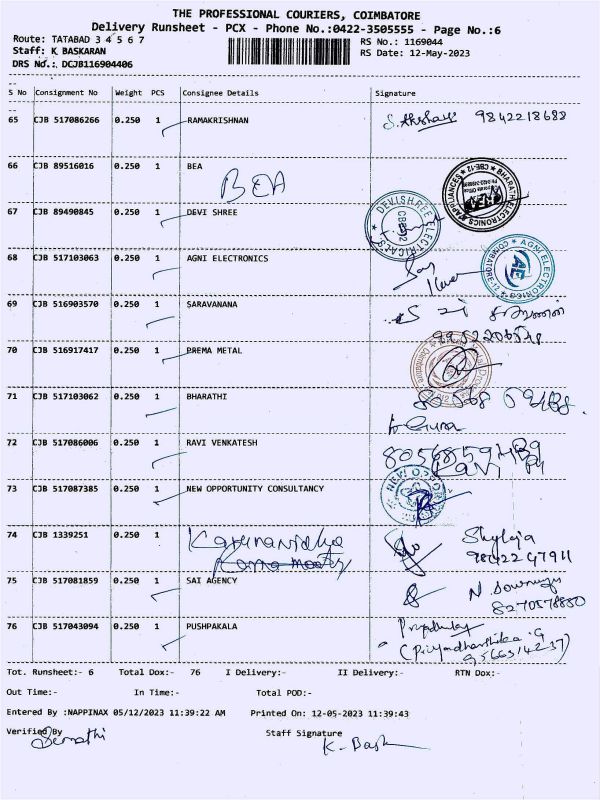 THE PROFESSIONAL COURIERS, COIMBATORE
Delivery Runsheet - PCX - Phone No.:0422-3505555 - Page No.:6
Route: TATABAD 3 4 5 6 7
RS No.: 1169044
Staff: K BASKARAN
RS Date: 12-May-2023
DRS No.: DCJB116904406
S No Consignment No Weight PCS Consignee Details Signature
65 CJB 517086266 0.250 1 RAMAKRISHNAN S. Akshaya 9842218688
66 CJB 89516016 0.250 1 BEA
BEA
67 CJB 89490845 0.250 1 DEVI SHREE
DEVISHREE ELECTRICALS
CBE-12
BHARATH ELECTRONICS & APPLIANCES
CBE-12
68 CJB 517103063 0.250 1 AGNI ELECTRONICS
AGNI ELECTRONICS
COIMBATORE-12
AE
69 CJB 516903570 0.250 1 SARAVANANA
70 CJB 516917417 0.250 1 PREMA METAL
71 CJB 517103062 0.250 1 BHARATHI
72 CJB 517086006 0.250 1 RAVI VENKATESH
73 CJB 517087385 0.250 1 NEW OPPORTUNITY CONSULTANCY
NEW OPPOR
74 CJB 1339251 0.250 1 Shyloja
9842247911
75 CJB 517081859 0.250 1 SAI AGENCY
8270578850
76 CJB 517043094 0.250 1 PUSHPAKALA
(Priyadharshika .G
9566314237)
Tot. Runsheet:- 6 Total Dox:- 76 I Delivery:- II Delivery:- RTN Dox:-
Out Time:- In Time:- Total POD:-
Entered By :NAPPINAX 05/12/2023 11:39:22 AM Printed On: 12-05-2023 11:39:43
Verified By Staff Signature
K. Bask